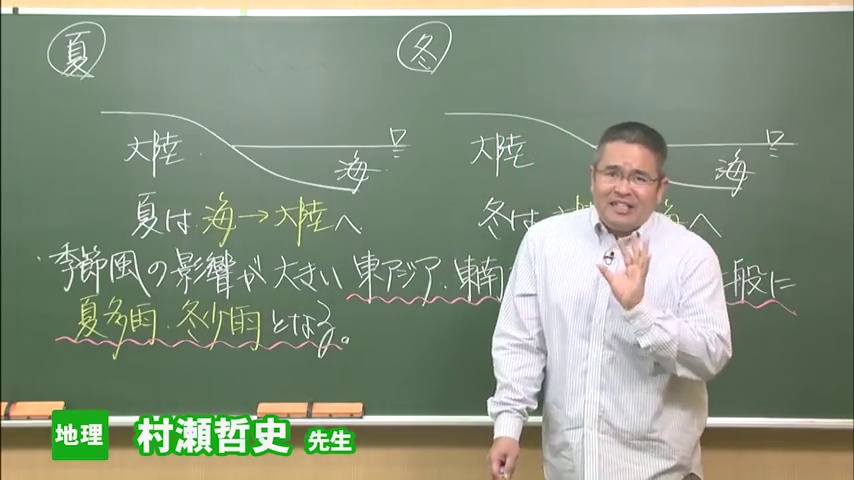 夏
冬
大陸
海
大陸
海
夏は 海→大陸へ
冬は 海へ
季節風の影響が 大きい 東アジア・東南 般に
夏多雨・冬少雨となる。
地理 村瀬哲史 先生